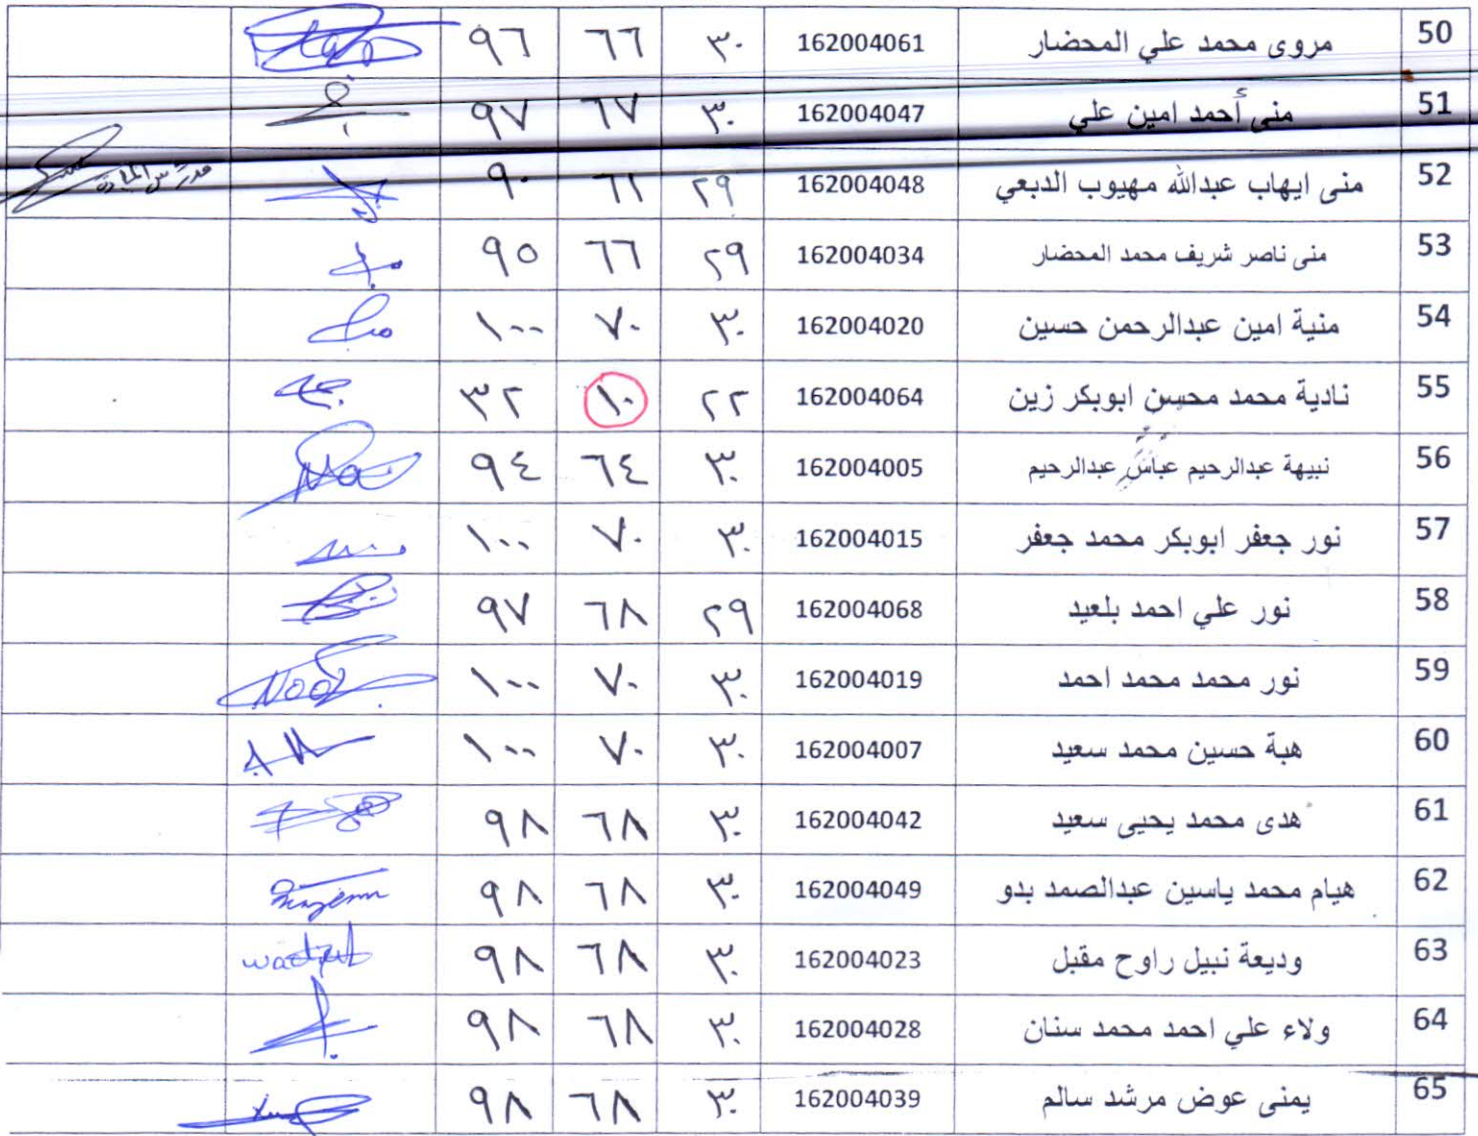 50 مروى محمد علي المحضار 162004061 ٣٠ ٦٦ ٩٦
51 منى أحمد امين علي 162004047 ٣٠ ٦٧ ٩٧
52 منى ايهاب عبدالله مهيوب الدبعي 162004048 ٢٩ ٦١ ٩٠ مدرس المادة
53 منى ناصر شريف محمد المحضار 162004034 ٢٩ ٦٦ ٩٥
54 منية امين عبدالرحمن حسين 162004020 ٣٠ ٧٠ ١٠٠
55 نادية محمد محسن ابوبكر زين 162004064 ٢٢ ١٠ ٣٢
56 نبيهة عبدالرحيم عباس عبدالرحيم 162004005 ٣٠ ٦٤ ٩٤
57 نور جعفر ابوبكر محمد جعفر 162004015 ٣٠ ٧٠ ١٠٠
58 نور علي احمد بلعيد 162004068 ٢٩ ٦٨ ٩٧
59 نور محمد محمد احمد 162004019 ٣٠ ٧٠ ١٠٠ Noor
60 هبة حسين محمد سعيد 162004007 ٣٠ ٧٠ ١٠٠
61 هدى محمد يحيى سعيد 162004042 ٣٠ ٦٨ ٩٨
62 هيام محمد ياسين عبدالصمد بدو 162004049 ٣٠ ٦٨ ٩٨
63 وديعة نبيل راوح مقبل 162004023 ٣٠ ٦٨ ٩٨
64 ولاء علي احمد محمد سنان 162004028 ٣٠ ٦٨ ٩٨
65 يمنى عوض مرشد سالم 162004039 ٣٠ ٦٨ ٩٨